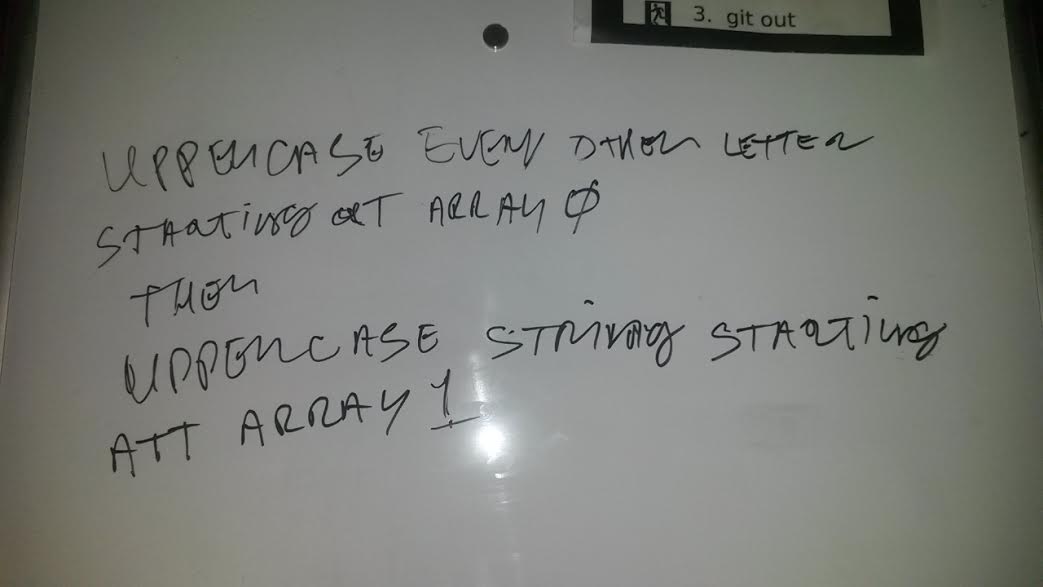 3. git out
UPPERCASE EVERY OTHER LETTER
STARTING AT ARRAY 0
THEN
UPPERCASE STRING STARTING
ATT ARRAY 1